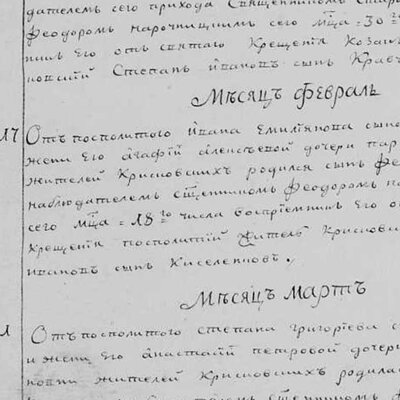 дателемъ сего прихода Священникомъ
Феодоромъ нарочницкимъ сего Мца = 30 го
никъ Его отъ святаго Крещенiя Козац
новскiй Степанъ Ивановъ сынъ Крав
Мѣсяцъ Февраль
17 Отъ посполитого Ивана Емилiянова сына
жени Его Агафiи Алексѣевой дочери пар
жителей Крисковскихъ родился сынъ Фе
наблюдателемъ сщенникомъ Феодоромъ на
сего Мца = 18 го числа воспрiемникъ Его о
крещенiя посполитiй житель Крисковс
Ивановъ сынъ Киселевновъ.
Мѣсяцъ Мартъ
1 Отъ посполитого Степана Григорiева с
и жени Его Анастасiи Петровой дочери
новни жителей Крисковскихъ родилас
сщенникомъ